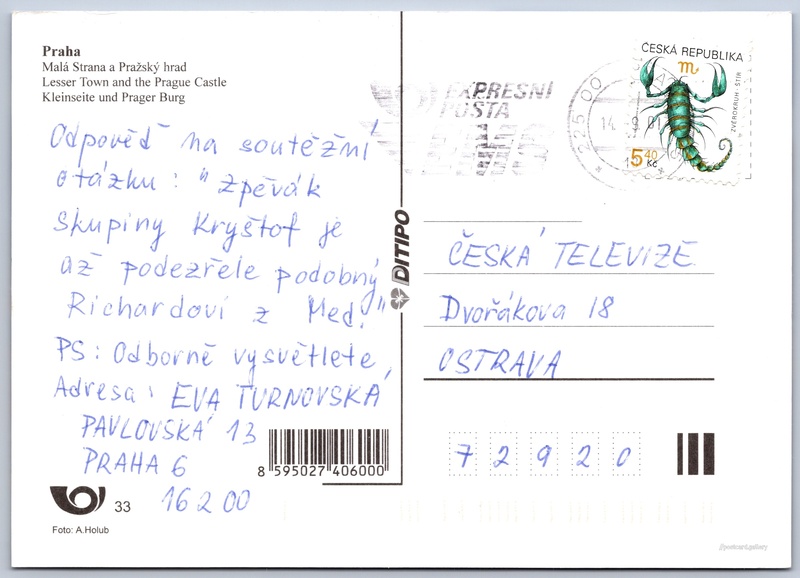 Praha
Malá Strana a Pražský hrad
Lesser Town and the Prague Castle
Kleinseite und Prager Burg
Odpověď na soutěžní
otázku: "Zpěvák
skupiny Kryštof je
až podezřele podobný
Richardovi z Med."
PS: Odborně vysvětlete,
Adresa: EVA TURNOVSKÁ
PAVLOVSKÁ 13
PRAHA 6
162 00
33
Foto: A.Holub
8 595027 406000
DITIPO
EXPRESNÍ
POŠTA
225 00
14. 9. 01
ČESKÁ REPUBLIKA
ZVĚROKRUH - ŠTÍR
5,40
Kč
ČESKÁ TELEVIZE
Dvořákova 18
OSTRAVA
72920
postcard.gallery